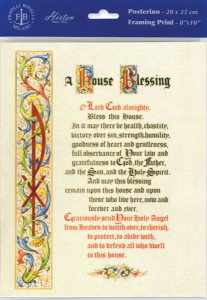 FRATELLI BONELLA
FB
MILANO
Hirten
Posterino - 20 x 25 cm
Framing Print - 8"x10"
A House Blessing
O Lord God almighty,
Bless this House.
In it may there be health, chastity,
victory over sin, strength, humility,
goodness of heart and gentleness,
full observance of Your law and
gratefulness to God, the Father,
and the Son, and the Holy Spirit.
And may this blessing
remain upon this house and upon
those who live here, now and
forever and ever.
Graciously send Your Holy Angel
from Heaven to watch over, to cherish,
to protect, to abide with,
and to defend all who dwell
in this house.